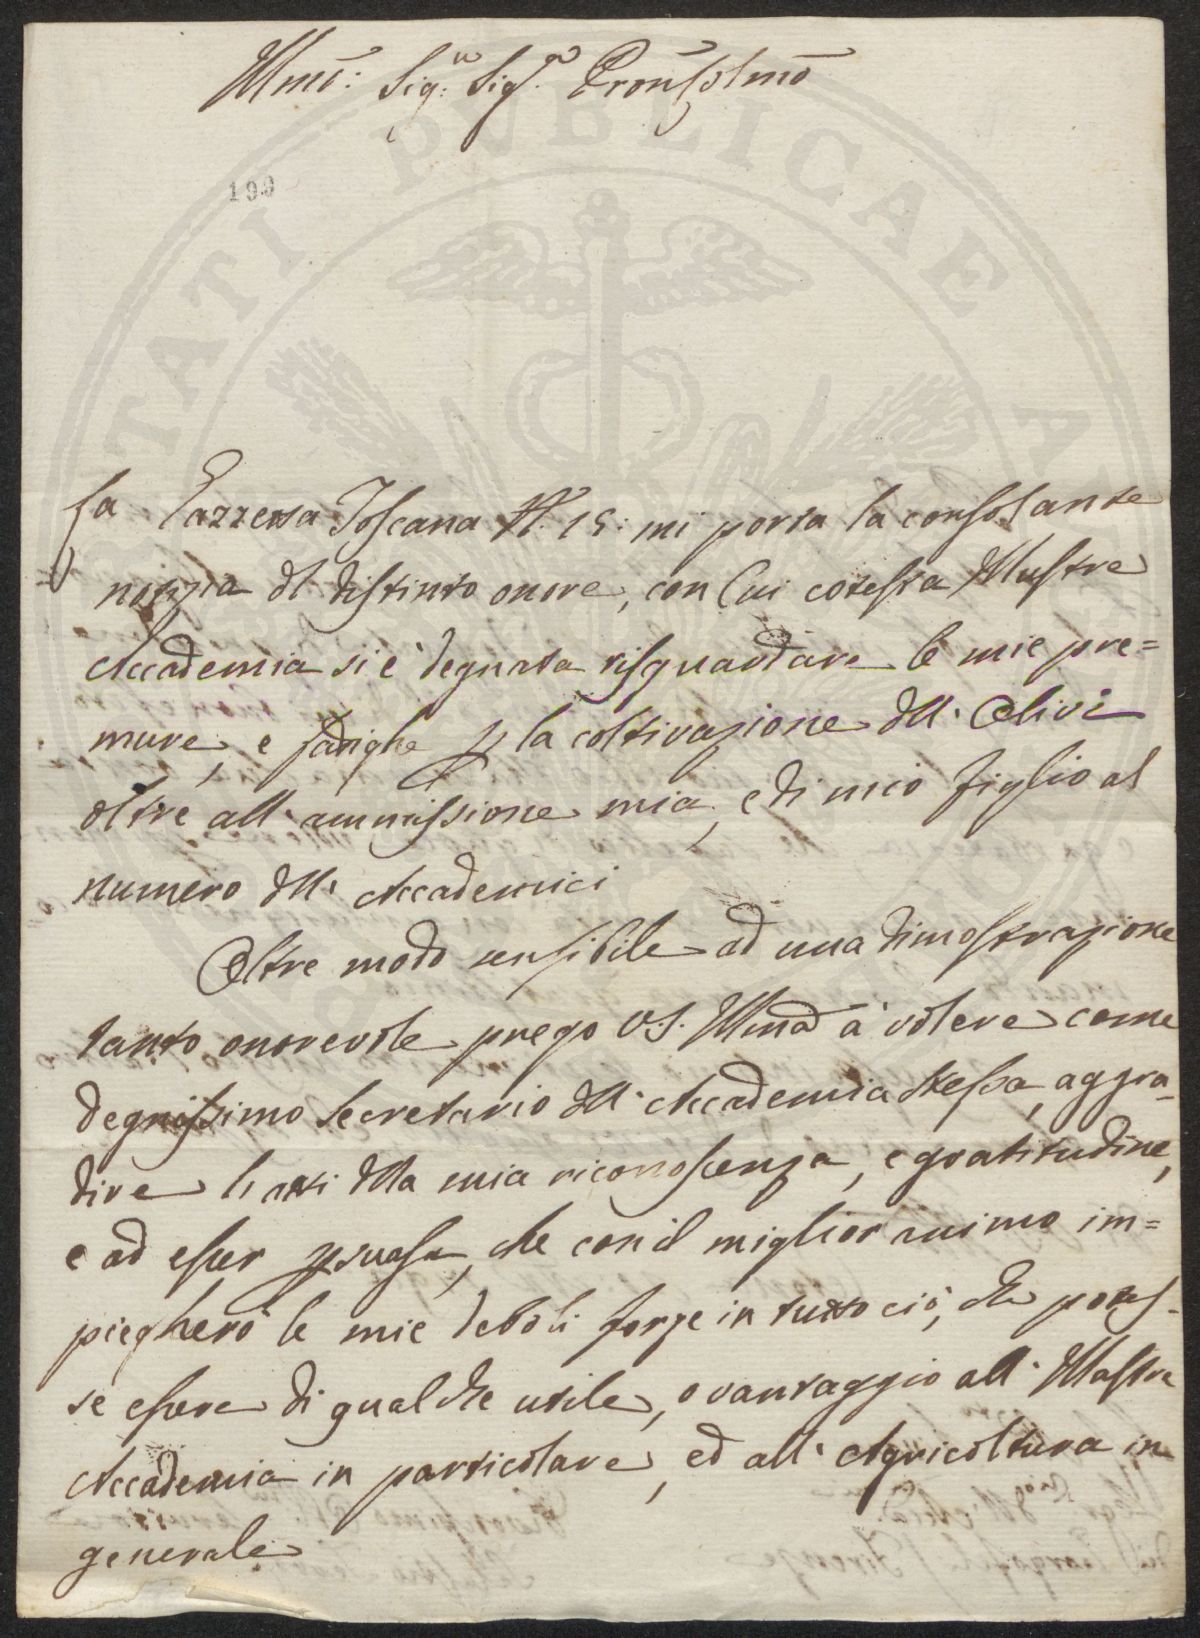 Illmõ: Sig.r Sig.r Prõn Colmõ
199
La Gazzetta Toscana N. 15: mi porta la consolante
notizia del distinto onore, con Cui cotesta Illustre
Accademia si è degnata risguardare le mie pre=
mure, e fatighe p la coltivazione dell' Olivi
oltre all' ammissione mia, e di mio figlio al
numero dell' Accademici
Oltre modo sensibile ad una dimostrazione
tanto onorevole prego V.S. Illmã à volere come
degnissimo Secretario dell' Accademia stessa, aggra=
dire li atti della mia riconoscenza, e gratitudine,
e ad esser psuasa, che con il miglior animo im=
piegherò le mie deboli forze in tutto ciò, che potes=
se essere di qualche utile, o vantaggio all' Illustre
Accademia in particolare, ed all' Agricoltura in
generale